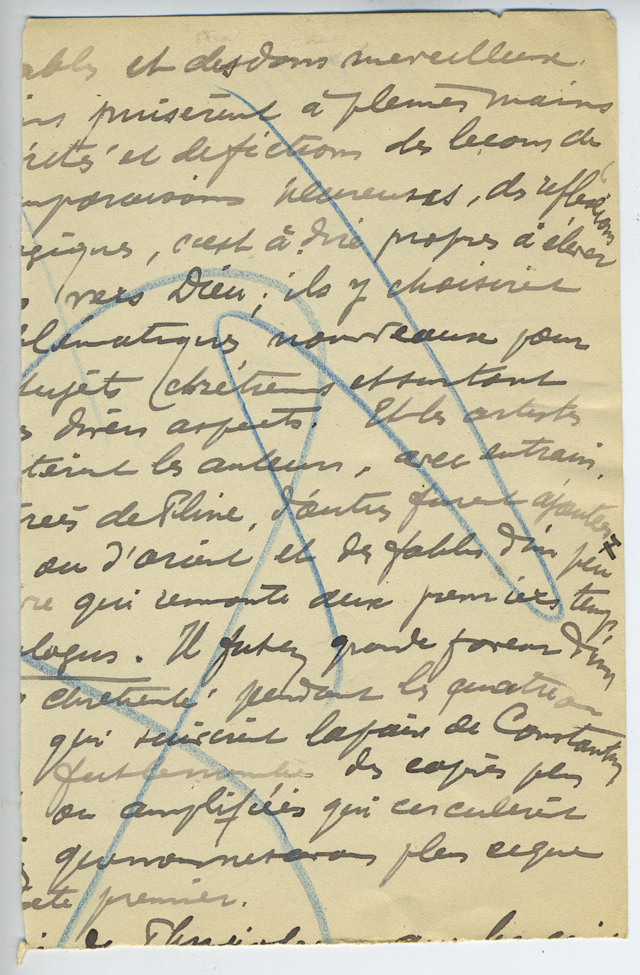 ables et des dons merveilleux.
puisèrent à pleines mains
et de fictions des leçons de
mparaisons heureuses, de réflexions
giques, c'est à dire propres à élever
vers Dieu ; ils y choisirent
blématiques nouveaux pour
sujets chrétiens et surtout
s divers aspects. Et les artistes
tèrent les auteurs, avec entrain.
rées de Pline, d'autres furent ajoutées
ou d'orient et des fables d'un peu
re qui remonte aux premiers temps
ologus. Il fut en grande faveur d'un
chrétienté pendant les quatre
qui suivirent la paix de Constantin
des copies plus
ou amplifiées qui circulèrent
plus ce que
premier.
de